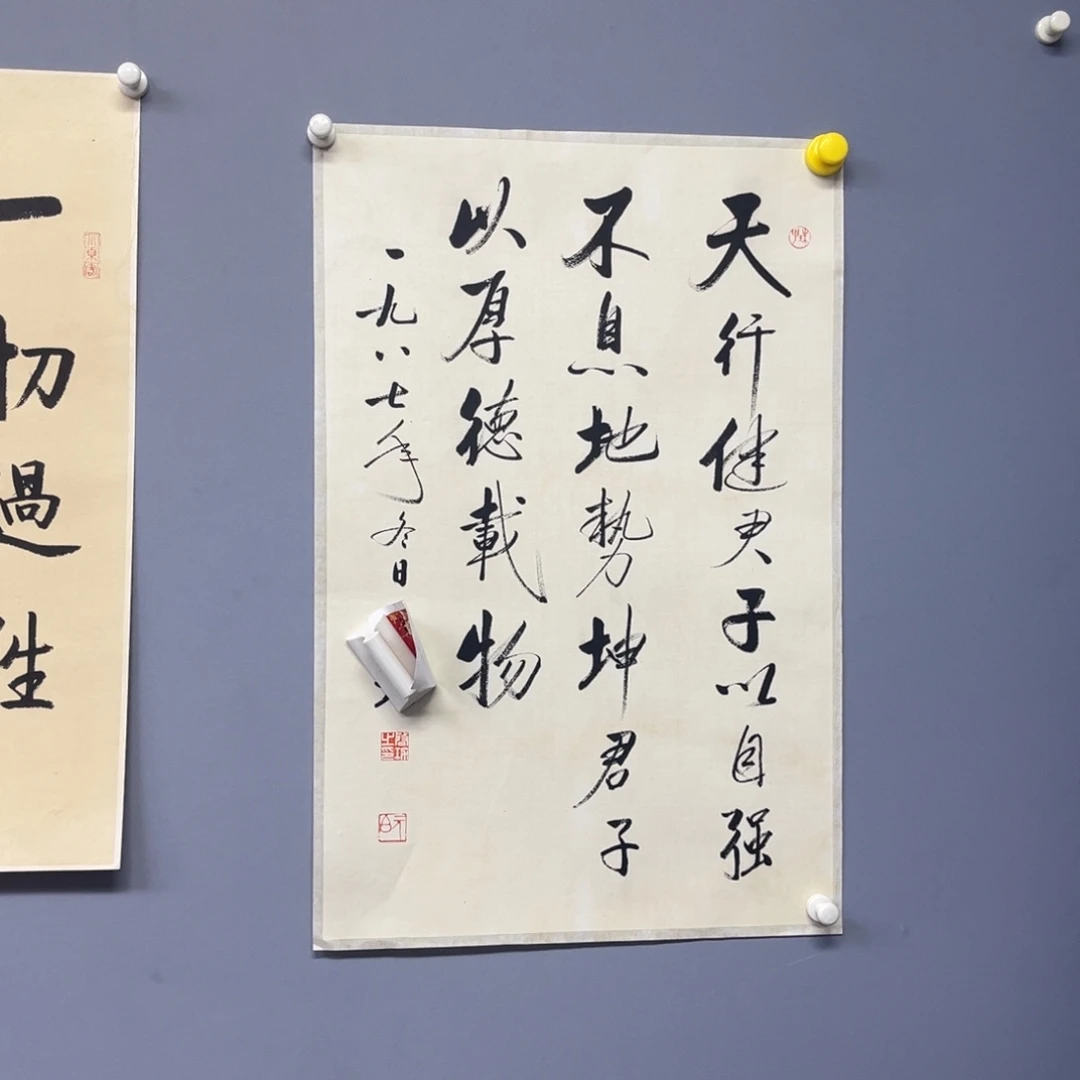 天行健君子以自强
不息地势坤君子
以厚德載物
一九八七年冬日
一切過往